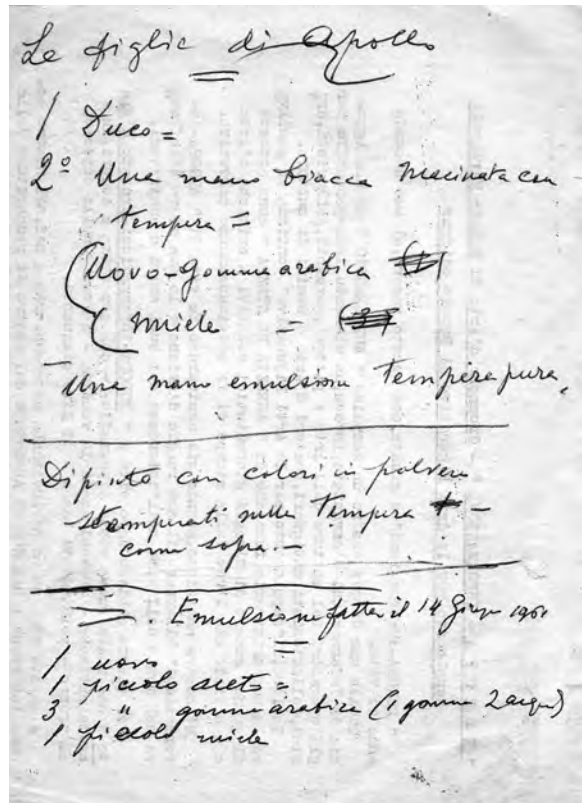 Le figlie di Apollo
1 Duco =
2º Una mano biacca macinata con
tempera =
Uovo - Gomma arabica
miele =
- Una mano emulsione Tempera pura.
Dipinto con colori in polvere
stemperati nella Tempera
come sopra. -
Emulsione fatta il 14 Giugno 1961
1 uovo
1 piccolo aceto =
3 " gomma arabica (1 gomma 2 acqua)
1 piccolo miele